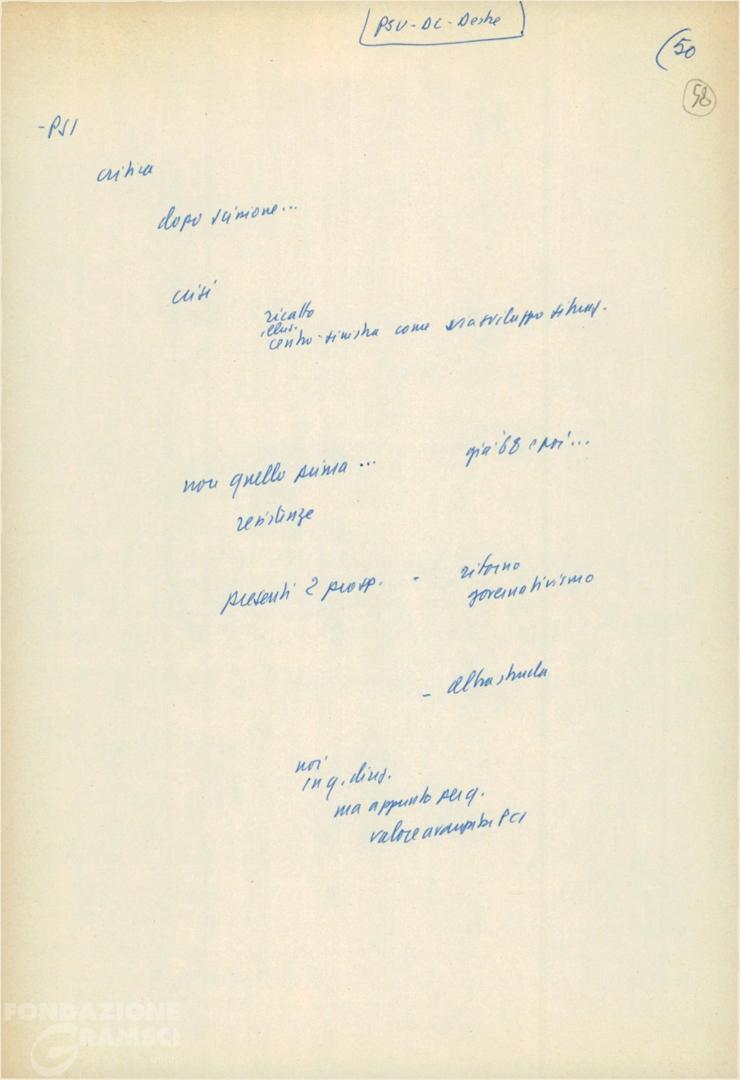 PSU-DC-Destre
(50
58
- PSI
critica
dopo scissione...
crisi
ricatto
illus.
centro-sinistra come via sviluppo
non quello prima...
già '68 e poi...
resistenze
presenti 2 prosp. -
ritorno
governativismo
- altra strada
noi
in q. direz.
ma appunto per q.
valore avanzata PCI
FONDAZIONE
GRAMSCI